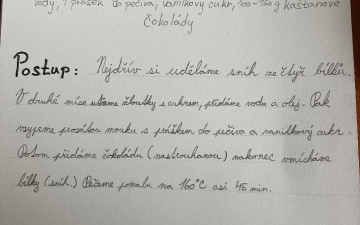 vody, 1 prášek do pečiva, vanilkový cukr, 100-150g kaštanové
čokolády
Postup: Nejdřív si uděláme sníh ze čtyř bílků.
V druhé míse utřeme žloutky s cukrem, přidáme vodu a olej. Pak
vsypeme prosátou mouku s práškem do pečiva a vanilkový cukr.
Potom přidáme čokoládu (nastrouhanou) nakonec vmícháme
bílky (sníh.) Pečeme pomalu na 160°C asi 45 min.